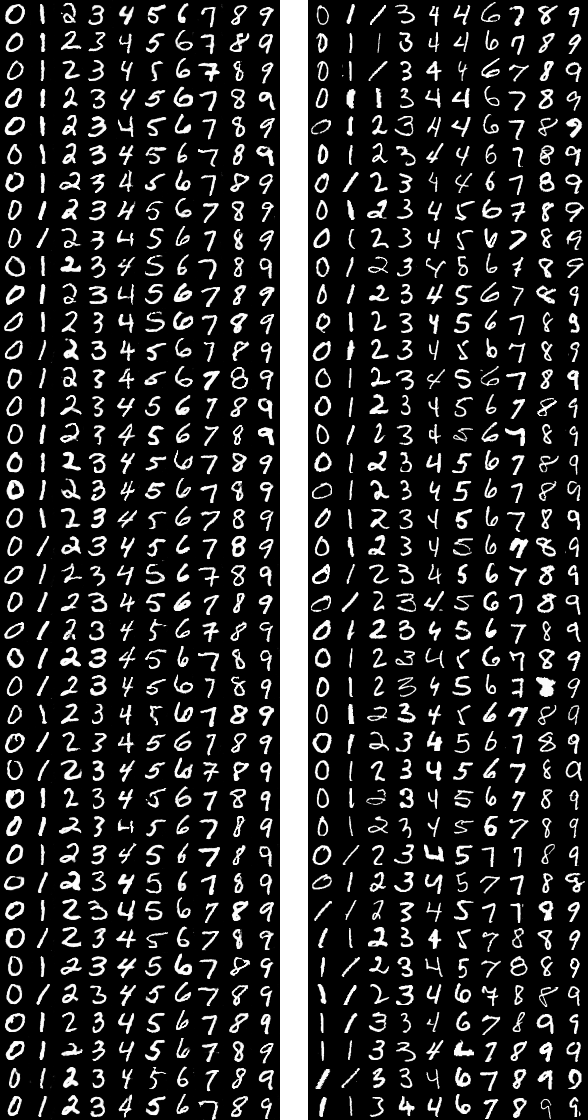 0 1 2 3 4 5 6 7 8 9 0 1 1 3 4 4 6 7 8 9
0 1 2 3 4 5 6 7 8 9 0 1 1 3 4 4 6 7 8 9
0 1 2 3 4 5 6 7 8 9 0 1 1 3 4 4 6 7 8 9
0 1 2 3 4 5 6 7 8 9 0 1 1 3 4 4 6 7 8 9
0 1 2 3 4 5 6 7 8 9 0 1 2 3 4 4 6 7 8 9
0 1 2 3 4 5 6 7 8 9 0 1 2 3 4 4 6 7 8 9
0 1 2 3 4 5 6 7 8 9 0 1 2 3 4 4 6 7 8 9
0 1 2 3 4 5 6 7 8 9 0 1 2 3 4 5 6 7 8 9
0 1 2 3 4 5 6 7 8 9 0 1 2 3 4 5 6 7 8 9
0 1 2 3 4 5 6 7 8 9 0 1 2 3 4 5 6 7 8 9
0 1 2 3 4 5 6 7 8 9 0 1 2 3 4 5 6 7 8 9
0 1 2 3 4 5 6 7 8 9 0 1 2 3 4 5 6 7 8 9
0 1 2 3 4 5 6 7 8 9 0 1 2 3 4 5 6 7 8 9
0 1 2 3 4 5 6 7 8 9 0 1 2 3 4 5 6 7 8 9
0 1 2 3 4 5 6 7 8 9 0 1 2 3 4 5 6 7 8 9
0 1 2 3 4 5 6 7 8 9 0 1 2 3 4 5 6 7 8 9
0 1 2 3 4 5 6 7 8 9 0 1 2 3 4 5 6 7 8 9
0 1 2 3 4 5 6 7 8 9 0 1 2 3 4 5 6 7 8 9
0 1 2 3 4 5 6 7 8 9 0 1 2 3 4 5 6 7 8 9
0 1 2 3 4 5 6 7 8 9 0 1 2 3 4 5 6 7 8 9
0 1 2 3 4 5 6 7 8 9 0 1 2 3 4 5 6 7 8 9
0 1 2 3 4 5 6 7 8 9 0 1 2 3 4 5 6 7 8 9
0 1 2 3 4 5 6 7 8 9 0 1 2 3 4 5 6 7 8 9
0 1 2 3 4 5 6 7 8 9 0 1 2 3 4 5 6 7 8 9
0 1 2 3 4 5 6 7 8 9 0 1 2 3 4 5 6 7 8 9
0 1 2 3 4 5 6 7 8 9 0 1 2 3 4 5 6 7 8 9
0 1 2 3 4 5 6 7 8 9 0 1 2 3 4 5 6 7 8 9
0 1 2 3 4 5 6 7 8 9 0 1 2 3 4 5 6 7 8 9
0 1 2 3 4 5 6 7 8 9 0 1 2 3 4 5 6 7 8 9
0 1 2 3 4 5 6 7 8 9 0 1 2 3 4 5 6 7 8 9
0 1 2 3 4 5 6 7 8 9 0 1 2 3 4 5 7 7 8 9
0 1 2 3 4 5 6 7 8 9 0 1 2 3 4 5 7 7 8 9
0 1 2 3 4 5 6 7 8 9 1 1 2 3 4 5 7 7 8 9
0 1 2 3 4 5 6 7 8 9 1 1 2 3 4 5 7 8 8 9
0 1 2 3 4 5 6 7 8 9 1 1 2 3 4 5 7 8 8 9
0 1 2 3 4 5 6 7 8 9 1 1 2 3 4 6 7 8 8 9
0 1 2 3 4 5 6 7 8 9 1 1 3 3 4 6 7 8 9 9
0 1 2 3 4 5 6 7 8 9 1 1 3 3 4 6 7 8 9 9
0 1 2 3 4 5 6 7 8 9 1 1 3 3 4 6 7 8 9 9
0 1 2 3 4 5 6 7 8 9 1 1 3 4 4 6 7 8 9 9